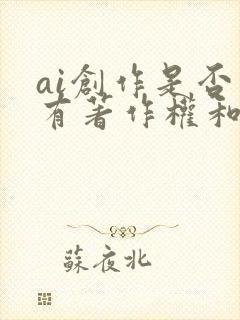 ai創作是否
有著作權和
蘇夜北